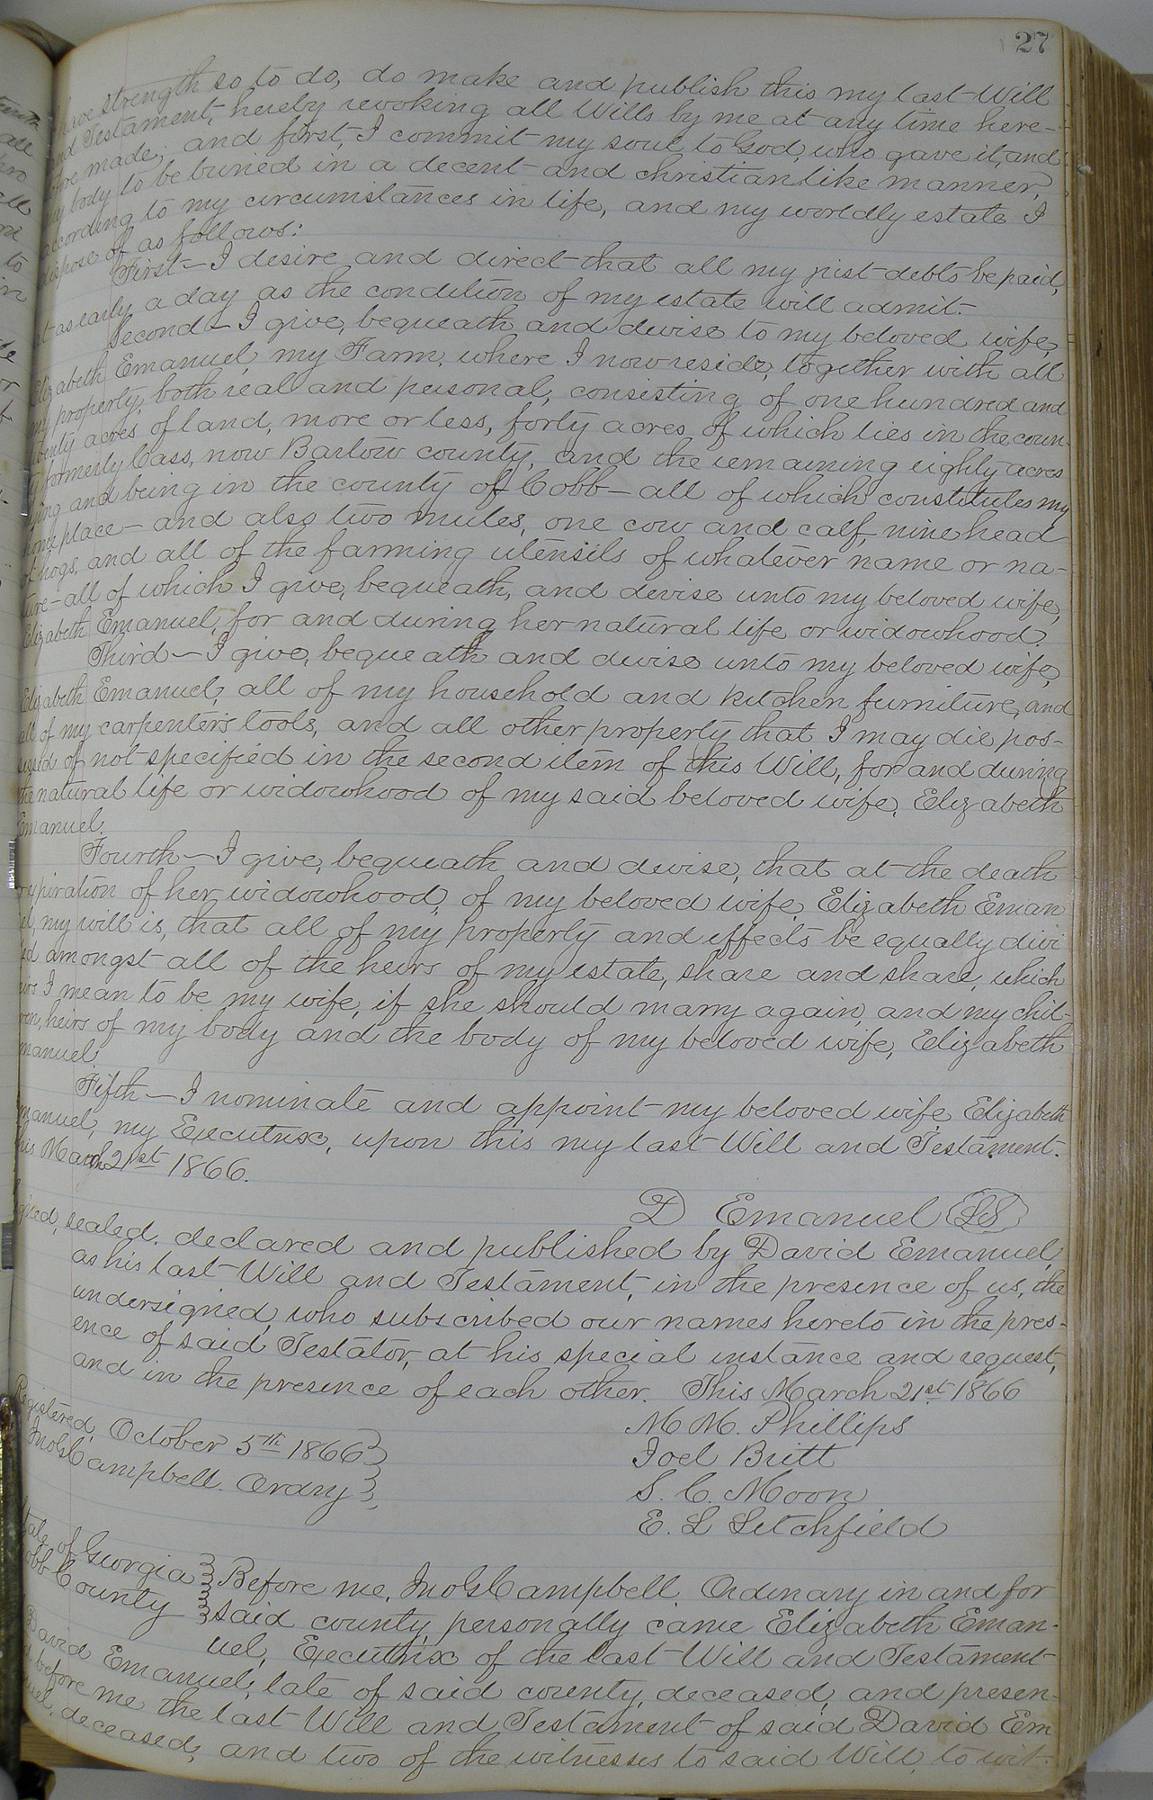 27
have strength so to do, do make and publish this my last Will
and Testament, hereby revoking all Wills by me at any time here-
fore made, and first, I commit my soul to God, who gave it, and
my body to be buried in a decent and christian like manner,
according to my circumstances in life, and my worldly estate I
dispose of as follows:
First— I desire and direct that all my just debts be paid,
at as early a day as the condition of my estate will admit.
Second— I give, bequeath and devise to my beloved wife,
Elizabeth Emanuel, my Farm, where I now reside, together with all
my property, both real and personal, consisting of one hundred and
twenty acres of land, more or less, forty acres of which lies in the coun-
ty formerly Cass, now Bartow county, and the remaining eighty acres
lying and being in the county of Cobb— all of which constitutes my
home place— and also two mules, one cow and calf, nine head
of hogs, and all of the farming utensils of whatever name or na-
ture— all of which I give, bequeath, and devise unto my beloved wife,
Elizabeth Emanuel, for and during her natural life or widowhood.
Third— I give, bequeath and devise unto my beloved wife,
Elizabeth Emanuel, all of my household and kitchen furniture, and
all of my carpenter's tools, and all other property that I may die pos-
sessed of not specified in the second item of this Will, for and during
the natural life or widowhood of my said beloved wife, Elizabeth
Emanuel.
Fourth— I give, bequeath and devise, that at the death
expiration of her widowhood, of my beloved wife, Elizabeth Eman
uel, my will is, that all of my property and effects be equally divi
ded amongst all of the heirs of my estate, share and share, which
heirs I mean to be my wife, if she should marry again, and my chil-
dren, heirs of my body and the body of my beloved wife, Elizabeth
Emanuel.
Fifth— I nominate and appoint my beloved wife, Elizabeth
Emanuel, my Executrix, upon this my last Will and Testament.
This March 21st 1866.
D Emanuel LS
Signed, sealed, declared and published by David Emanuel,
as his last Will and Testament, in the presence of us, the
undersigned, who subscribed our names hereto in the pres-
ence of said Testator, at his special instance and request,
and in the presence of each other. This March 21st 1866
M M. Phillips
Joel Britt
S. C. Moon
E. L Litchfield
Registered, October 5th 1866
Jno G Campbell. Ordny
State of Georgia
Cobb County
Before me, Jno G Campbell. Ordinary in and for
said county, personally came Elizabeth Eman-
uel, Executrix of the last Will and Testament
David Emanuel, late of said county, deceased, and presen-
before me the last Will and Testament of said David Em
uel, deceased, and two of the witnesses to said Will, to wit-